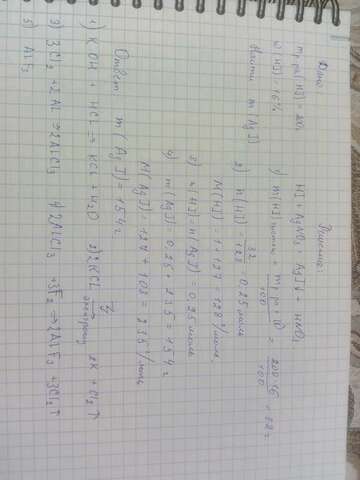 Дано:
m р-ра(HI) = 200г
ω(HI) = 16%
Найти: m(AgI)
Решение:
HI + AgNO₃ = AgI↓ + HNO₃
1) m(HI) = m р-ра · ω / 100 = 200 · 16 / 100 = 32 г
2) n(HI) = 32 / 128 = 0,25 моль
M(HI) = 1 + 127 = 128 г/моль
3) n(HI) = n(AgI) = 0,25 моль
4) m(AgI) = 0,25 · 235 = 154 г
M(AgI) = 127 + 108 = 235 г/моль
Ответ: m(AgI) = 154 г
1) KOH + HCl = KCl + H₂O 2) 2KCl = 2K + Cl₂↑
3) 3Cl₂ + 2Al → 2AlCl₃ 4) 2AlCl₃ + 3F₂ → 2AlF₃ + 3Cl₂↑
5) AlF₃